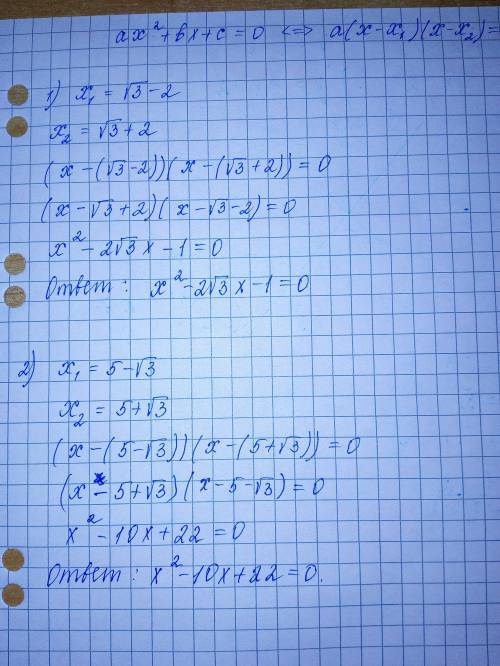 ax² + bx + c = 0 <=> a(x - x₁)(x - x₂) =
1) x₁ = √3 - 2
x₂ = √3 + 2
(x - (√3 - 2))(x - (√3 + 2)) = 0
(x - √3 + 2)(x - √3 - 2) = 0
x² - 2√3x - 1 = 0
Ответ: x² - 2√3x - 1 = 0
2) x₁ = 5 - √3
x₂ = 5 + √3
(x - (5 - √3))(x - (5 + √3)) = 0
(x - 5 + √3)(x - 5 - √3) = 0
x² - 10x + 22 = 0
Ответ: x² - 10x + 22 = 0.